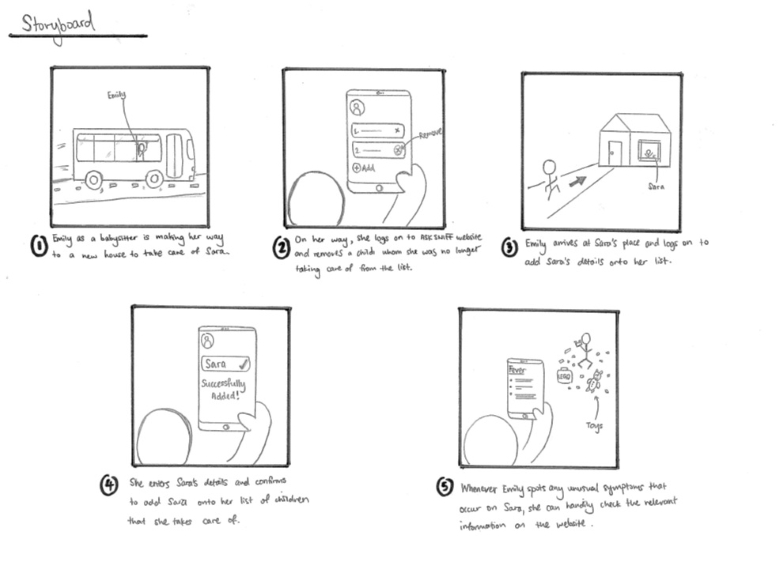 Storyboard
Emily
① Emily as a babysitter is making her way
to a new house to take care of Sara.
1.
x
2.
x
Remove
+ Add
② On her way, she logs on to ASKSNIFF website
and removes a child whom she was no longer
taking care of from the list.
Sara
③ Emily arrives at Sara's place and logs on to
add Sara's details onto her list.
Sara ✓
Successfully
Added!
④ She enters Sara's details and confirms
to add Sara onto her list of children
that she takes care of.
Fever
LEGO
Toys
⑤ Whenever Emily spots any unusual symptoms that
occur on Sara, she can handily check the relevant
information on the website.